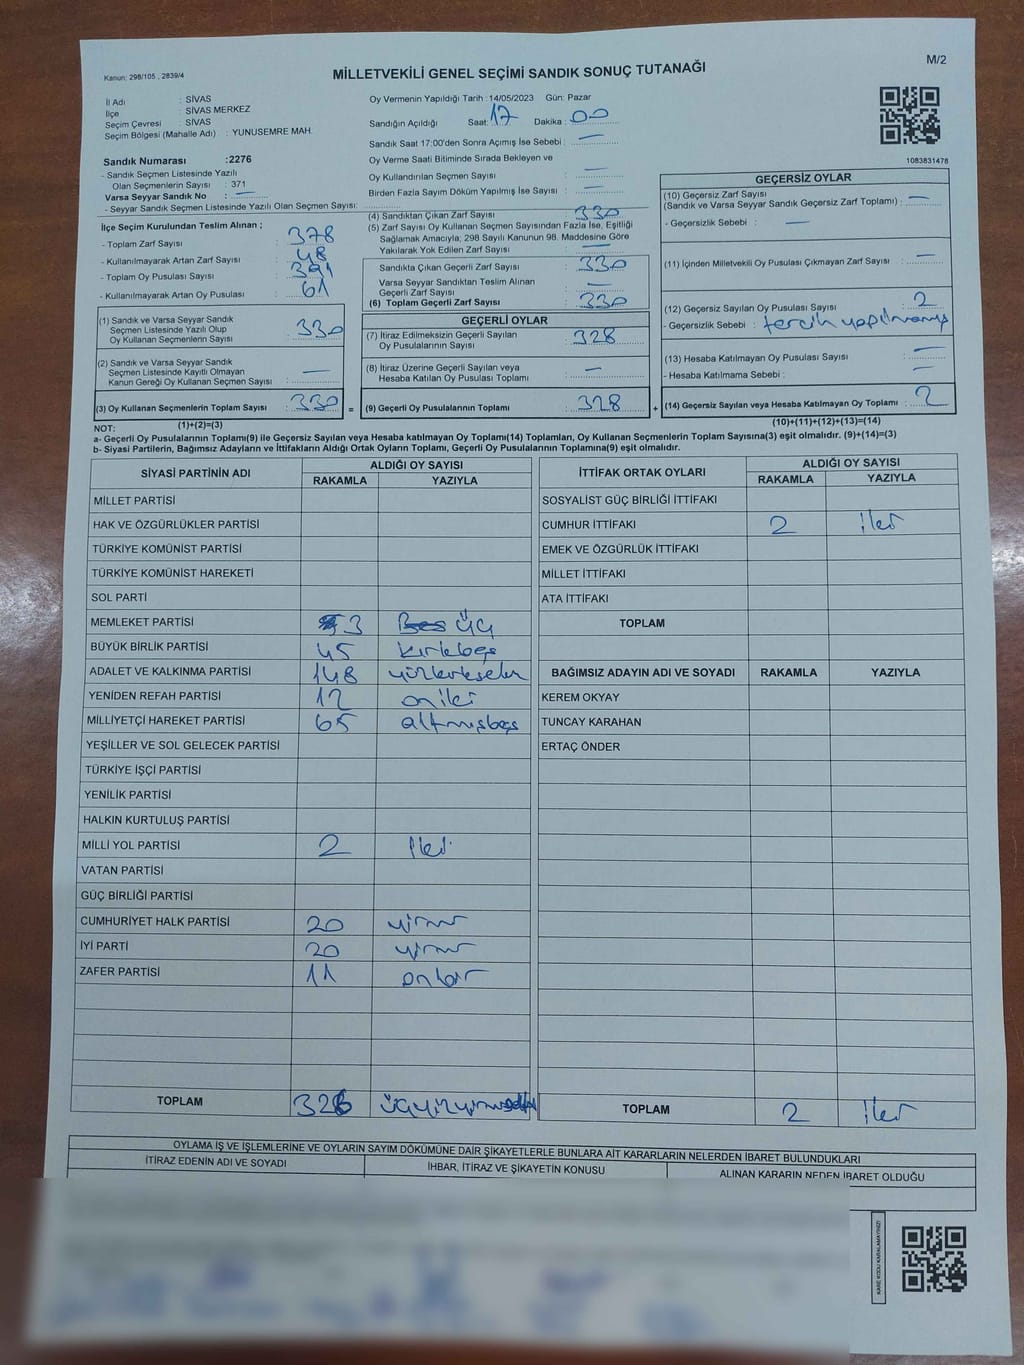 Kanun: 298/105 , 2839/4
MİLLETVEKİLİ GENEL SEÇİMİ SANDIK SONUÇ TUTANAĞI
M/2
İl Adı : SİVAS
İlçe : SİVAS MERKEZ
Seçim Çevresi : SİVAS
Seçim Bölgesi (Mahalle Adı) : YUNUSEMRE MAH.
Sandık Numarası :2276
- Sandık Seçmen Listesinde Yazılı
Olan Seçmenlerin Sayısı : 371
Varsa Seyyar Sandık No : —
- Seyyar Sandık Seçmen Listesinde Yazılı Olan Seçmen Sayısı:
Oy Vermenin Yapıldığı Tarih :14/05/2023 Gün: Pazar
Sandığın Açıldığı Saat: 17 Dakika : 00
Sandık Saat 17:00'den Sonra Açımış İse Sebebi : —
Oy Verme Saati Bitiminde Sırada Bekleyen ve
Oy Kullandırılan Seçmen Sayısı : —
Birden Fazla Sayım Döküm Yapılmış İse Sayısı : —
1083831478
İlçe Seçim Kurulundan Teslim Alınan ;
- Toplam Zarf Sayısı : 378
- Kullanılmayarak Artan Zarf Sayısı : 48
- Toplam Oy Pusulası Sayısı : 391
- Kullanılmayarak Artan Oy Pusulası : 61
(1) Sandık ve Varsa Seyyar Sandık
Seçmen Listesinde Yazılı Olup
Oy Kullanan Seçmenlerin Sayısı : 330
(2) Sandık ve Varsa Seyyar Sandık
Seçmen Listesinde Kayıtlı Olmayan
Kanun Gereği Oy Kullanan Seçmen Sayısı : —
(3) Oy Kullanan Seçmenlerin Toplam Sayısı : 330 =
(1)+(2)=(3)
(4) Sandıktan Çıkan Zarf Sayısı : 330
(5) Zarf Sayısı Oy Kullanan Seçmen Sayısından Fazla İse, Eşitliği
Sağlamak Amacıyla; 298 Sayılı Kanunun 98. Maddesine Göre
Yakılarak Yok Edilen Zarf Sayısı : —
Sandıkta Çıkan Geçerli Zarf Sayısı : 330
Varsa Seyyar Sandıktan Teslim Alınan
Geçerli Zarf Sayısı : —
(6) Toplam Geçerli Zarf Sayısı : 330
GEÇERLİ OYLAR
(7) İtiraz Edilmeksizin Geçerli Sayılan
Oy Pusulalarının Sayısı : 328
(8) İtiraz Üzerine Geçerli Sayılan veya
Hesaba Katılan Oy Pusulası Toplamı : —
(9) Geçerli Oy Pusulalarının Toplamı : 328 +
GEÇERSİZ OYLAR
(10) Geçersiz Zarf Sayısı
(Sandık ve Varsa Seyyar Sandık Geçersiz Zarf Toplamı) : —
- Geçersizlik Sebebi : —
(11) İçinden Milletvekili Oy Pusulası Çıkmayan Zarf Sayısı : —
(12) Geçersiz Sayılan Oy Pusulası Sayısı : 2
- Geçersizlik Sebebi : tercih yapılmamış
(13) Hesaba Katılmayan Oy Pusulası Sayısı : —
- Hesaba Katılmama Sebebi : —
(14) Geçersiz Sayılan veya Hesaba Katılmayan Oy Toplamı : 2
(10)+(11)+(12)+(13)=(14)
NOT:
a- Geçerli Oy Pusulalarının Toplamı(9) ile Geçersiz Sayılan veya Hesaba katılmayan Oy Toplamı(14) Toplamları, Oy Kullanan Seçmenlerin Toplam Sayısına(3) eşit olmalıdır. (9)+(14)=(3)
b- Siyasi Partilerin, Bağımsız Adayların ve İttifakların Aldığı Ortak Oyların Toplamı, Geçerli Oy Pusulalarının Toplamına(9) eşit olmalıdır.
SİYASİ PARTİNİN ADI ALDIĞI OY SAYISI
RAKAMLA YAZIYLA
MİLLET PARTİSİ
HAK VE ÖZGÜRLÜKLER PARTİSİ
TÜRKİYE KOMÜNİST PARTİSİ
TÜRKİYE KOMÜNİST HAREKETİ
SOL PARTİ
MEMLEKET PARTİSİ 3 Beş üç
BÜYÜK BİRLİK PARTİSİ 45 kırkbeş
ADALET VE KALKINMA PARTİSİ 148 yüzkırksekiz
YENİDEN REFAH PARTİSİ 12 oniki
MİLLİYETÇİ HAREKET PARTİSİ 65 altmışbeş
YEŞİLLER VE SOL GELECEK PARTİSİ
TÜRKİYE İŞÇİ PARTİSİ
YENİLİK PARTİSİ
HALKIN KURTULUŞ PARTİSİ
MİLLİ YOL PARTİSİ 2 İki
VATAN PARTİSİ
GÜÇ BİRLİĞİ PARTİSİ
CUMHURİYET HALK PARTİSİ 20 yirmi
İYİ PARTİ 20 yirmi
ZAFER PARTİSİ 11 onbir
TOPLAM 326
İTTİFAK ORTAK OYLARI ALDIĞI OY SAYISI
RAKAMLA YAZIYLA
SOSYALİST GÜÇ BİRLİĞİ İTTİFAKI
CUMHUR İTTİFAKI 2 iki
EMEK VE ÖZGÜRLÜK İTTİFAKI
MİLLET İTTİFAKI
ATA İTTİFAKI
TOPLAM
BAĞIMSIZ ADAYIN ADI VE SOYADI RAKAMLA YAZIYLA
KEREM OKYAY
TUNCAY KARAHAN
ERTAÇ ÖNDER
TOPLAM 2 iki
OYLAMA İŞ VE İŞLEMLERİNE VE OYLARIN SAYIM DÖKÜMÜNE DAİR ŞİKAYETLERLE BUNLARA AİT KARARLARIN NELERDEN İBARET BULUNDUKLARI
İTİRAZ EDENİN ADI VE SOYADI
İHBAR, İTİRAZ VE ŞİKAYETİN KONUSU
ALINAN KARARIN NEDEN İBARET OLDUĞU
KARE KODU KARALAMAYINIZ!